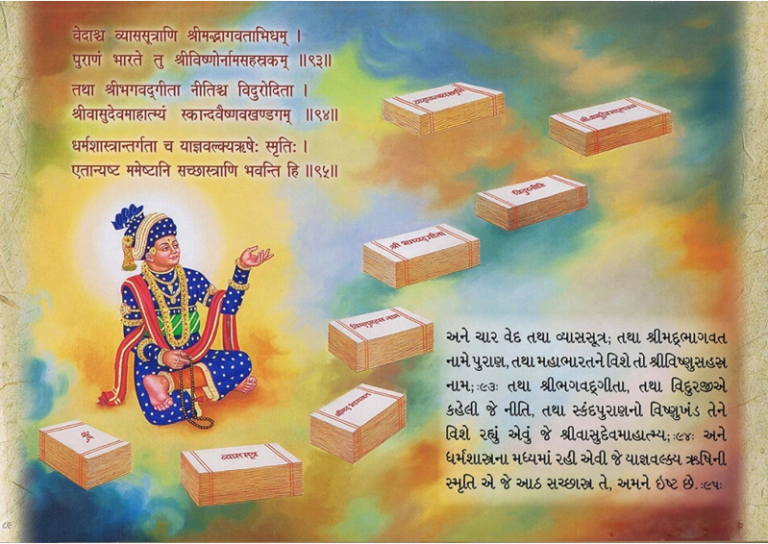 वेदाश्च व्याससूत्राणि श्रीमद्भागवताभिधम् ।
पुराणं भारते तु श्रीविष्णोर्नामसहस्रकम् ॥९३॥
तथा श्रीभगवद्गीता नीतिश्च विदुरोदिता ।
श्रीवासुदेवमाहात्म्यं स्कान्दवैष्णवखण्डगम् ॥९४॥
धर्मशास्त्रान्तर्गता च याज्ञवल्क्यऋषेः स्मृतिः ।
एतान्यष्ट ममेष्टानि सच्छास्त्राणि भवन्ति हि ॥९५॥
विदुरनीति
श्री भगवद्गीता
विष्णुसहस्र नाम
व्यास सूत्र
અને ચાર વેદ તથા વ્યાસસૂત્ર; તથા શ્રીમદ્‌ભાગવત
નામે પુરાણ, તથા મહાભારતને વિશે તો શ્રીવિષ્ણુસહસ્ર
નામ; :૯૩: તથા શ્રીભગવદ્‌ગીતા, તથા વિદુરજીએ
કહેલી જે નીતિ, તથા સ્કંદપુરાણનો વિષ્ણુખંડ તેને
વિશે રહ્યું એવું જે શ્રીવાસુદેવમાહાત્મ્ય; :૯૪: અને
ધર્મશાસ્ત્રના મધ્યમાં રહી એવી જે યાજ્ઞવલ્ક્ય ઋષિની
સ્મૃતિ એ જે આઠ સચ્છાસ્ત્ર તે, અમને ઇષ્ટ છે. :૯૫: